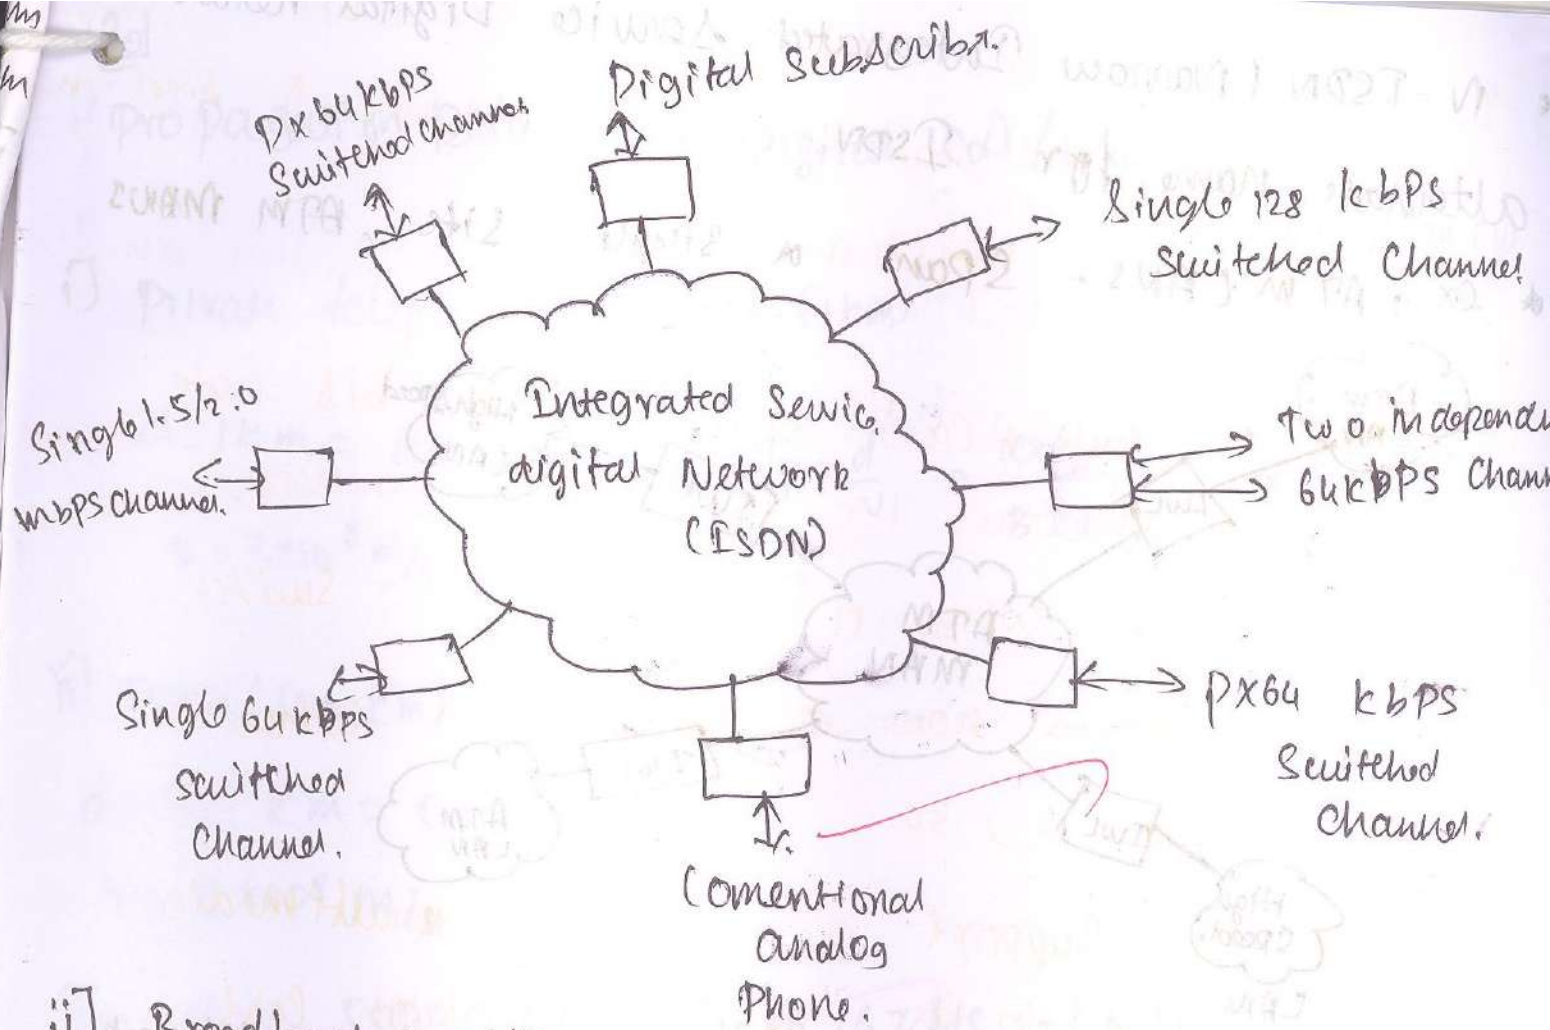 Digital Subscriber.
PX64kbps
Switched channel
Single 128 kbps
Switched Channel
Single 1.5/2.0
mbps channel.
Integrated Servic
digital Network
(ISDN)
Two independ
64kbps Chann
Single 64kbps
switched
Channel.
PX64 kbps
Switched
Channel.
Conventional
analog
Phone.
ii]